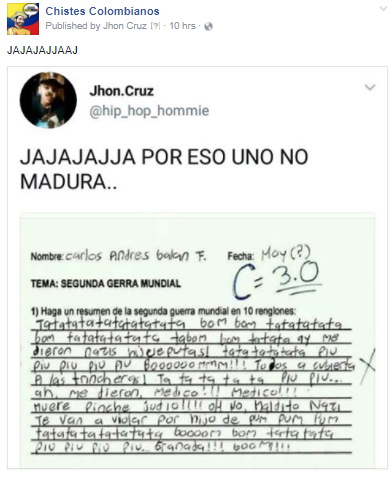 Chistes Colombianos
Published by Jhon Cruz [?] · 10 hrs ·
JAJAJAJJAAJ
Jhon.Cruz
@hip_hop_hommie
JAJAJAJJA POR ESO UNO NO
MADURA..
Nombre: carlos Andres balan F. Fecha: Moy(?)
C= 3.0
TEMA: SEGUNDA GERRA MUNDIAL
1) Haga un resumen de la segunda guerra mundial en 10 renglones:
Tatatatatatatatatata bom bom tatatatata
bom tatatatatata tabom bom tatata ay me
dieron nazis hijueputas! tatatatatata piu
piu piu piu piu boooooommm!!! Todos a cubierta
A las trincheras! Ta ta ta ta ta Piu Piu...
ah, me dieron, Medico!!! Medico!!!
muere Pinche judio!!!! oh no, maldito Nazi
Te van a violar por hijo de pum pum pum
tatatatatatatatata boooom bom tatatata
piu piu piu piu.. Granada!!! boom!!!